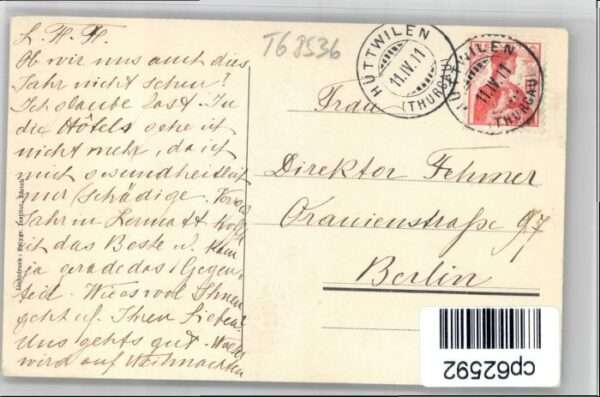 L. H. H.
Ob wir uns auch dies
Jahr nicht sehen?
Ich glaube fast. In
die Hôtels gehe ich
nicht mehr, da ich
mich gesundheitlich
nur schädige. Voriges
Jahr in Zermatt
ist das Beste u. kam
ja gerade das Gegen-
teil. Wie es wol Ihnen
geht u. Ihren Lieben?
Uns gehts gut.
wird auf Weihnachten
T68536
HÜTTWILEN
11.IV.11
(THURGAU)
HÜTTWILEN
11.IV.11
(THURGAU)
Frau
Direktor Fehmer
Oranienstraße 97
Berlin
cp62592